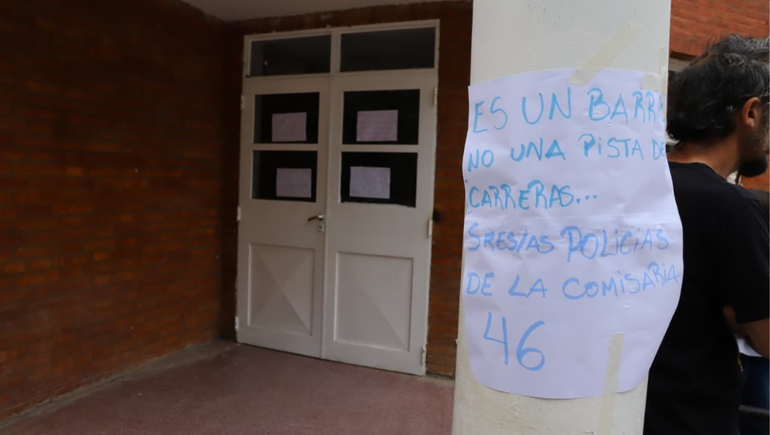 ES UN BARRI
NO UNA PISTA DE
CARRERAS...
SRES/AS POLICIAS
DE LA COMISARIA
46